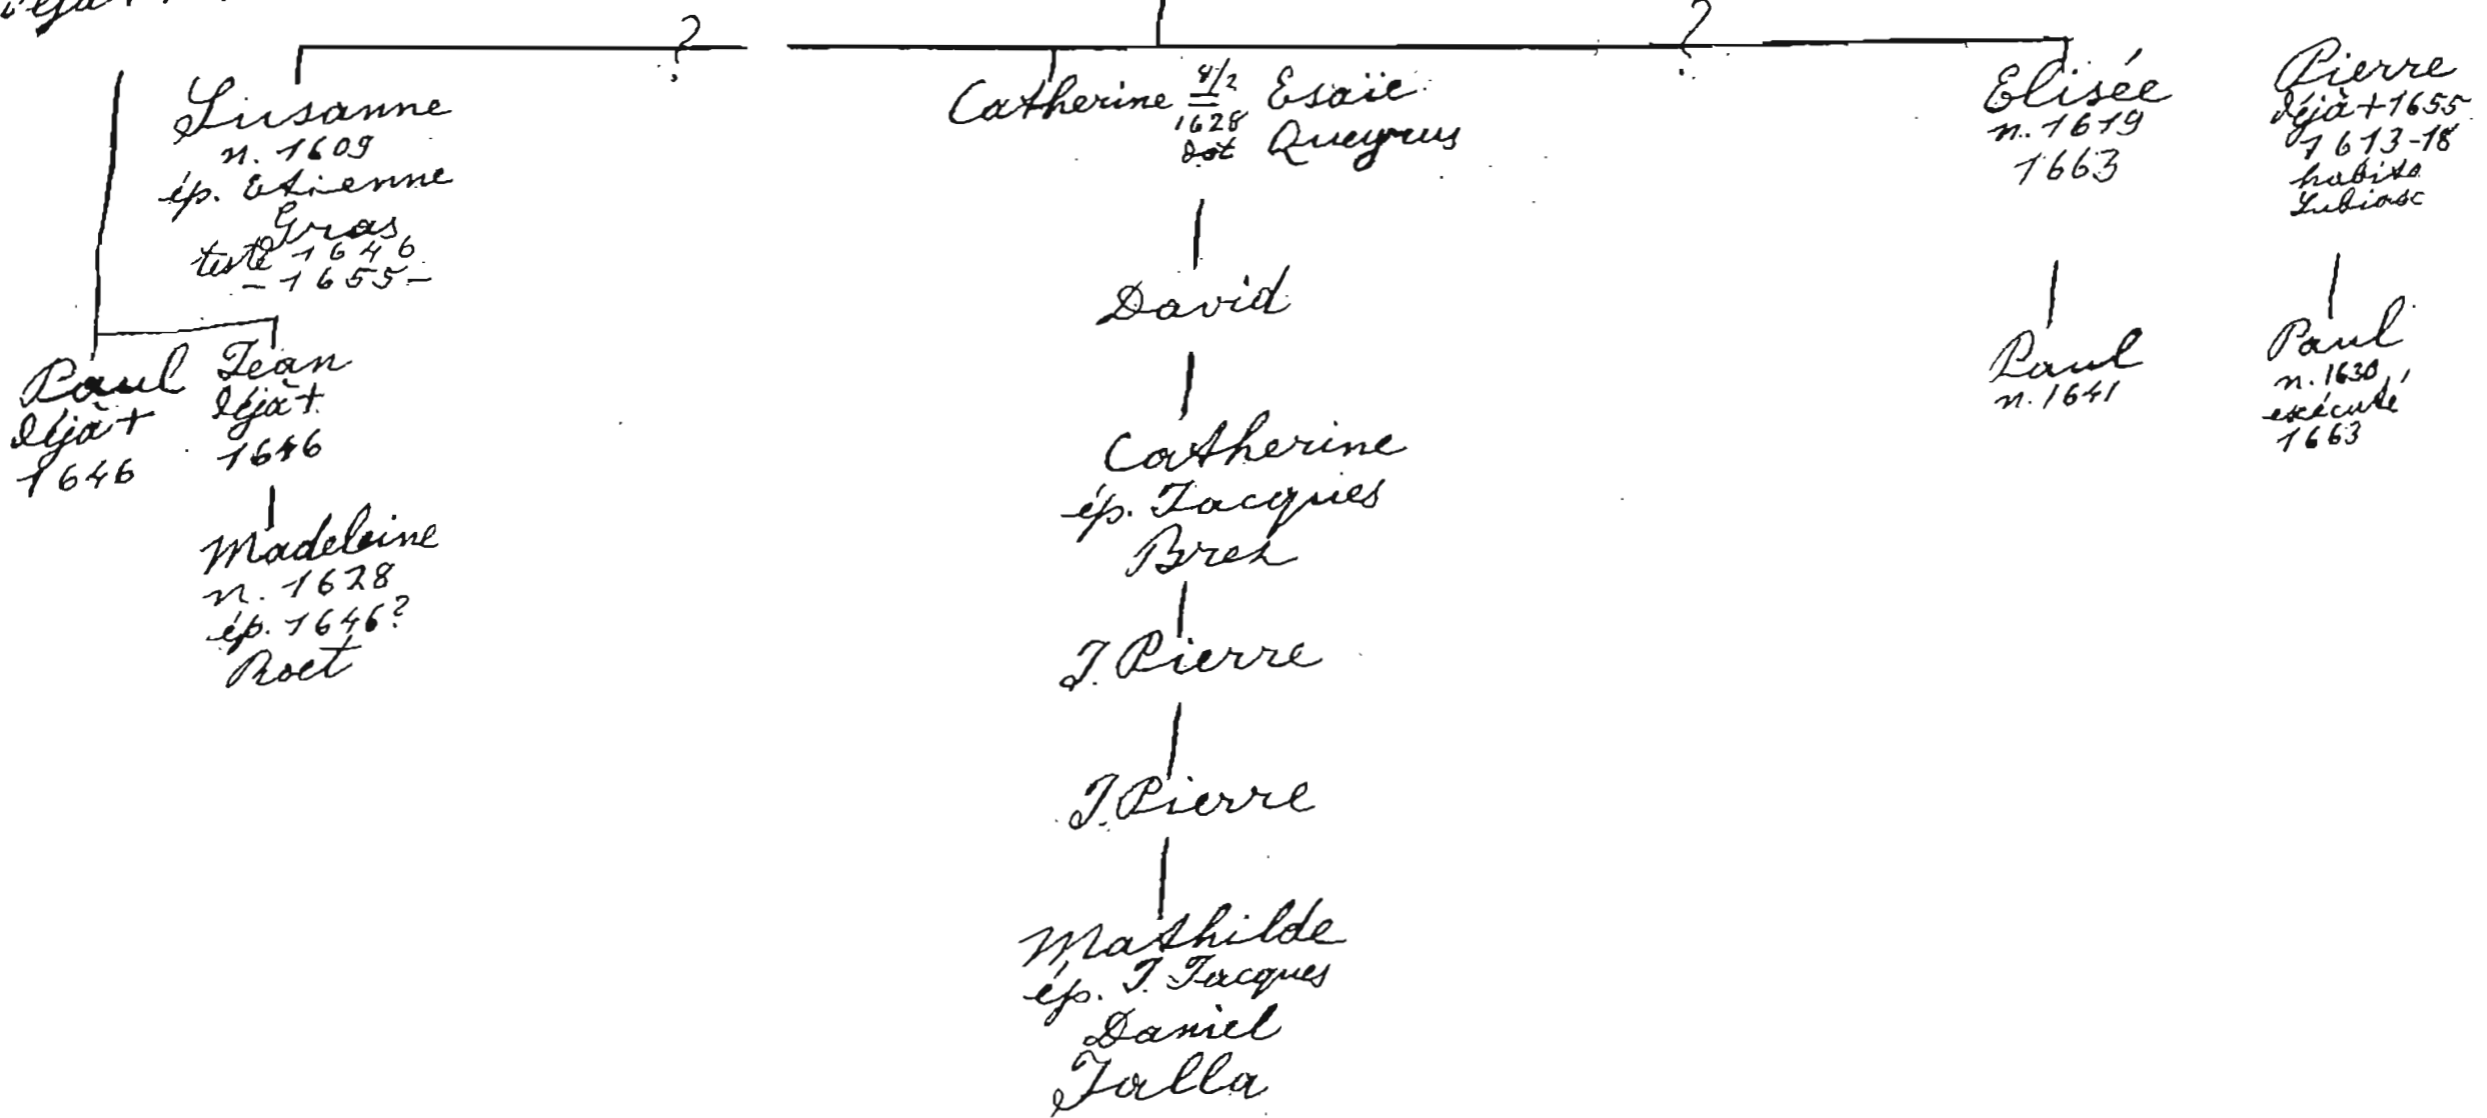 déjà +
?
?
Susanne
n. 1609
ép. Etienne
Gras
teste 1646
- 1655 -
Paul
déjà +
1646
Jean
déjà +
1646
Madeleine
n. 1628
ép. 1646?
Roet
Catherine 4/2 = 1628 dot Esaïe
Queyrus
David
Catherine
ép. Jacques
Brez
J. Pierre
J. Pierre
Mathilde
ép. J. Jacques
Daniel
Jalla
Elisée
n. 1619
1663
Paul
n. 1641
Pierre
déjà + 1655
1613-18
habite
Lubiasc
Paul
n. 1630
exécuté
1663